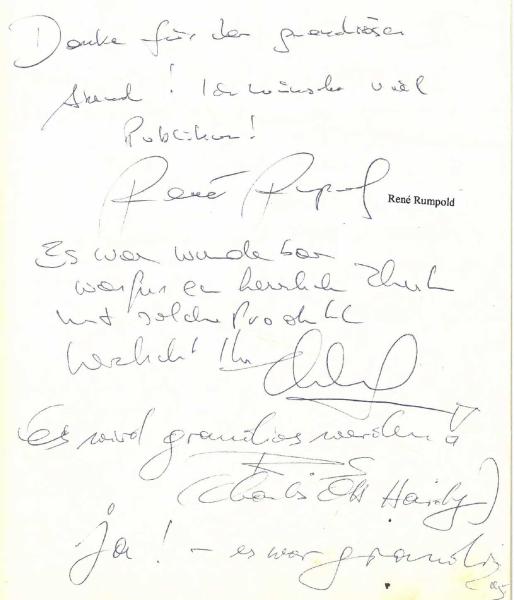 Danke für den grandiosen
Abend! Ich wünsche viel
Publikum!
René Rumpold
René Rumpold
Es war wunderbar
was für ein herrlich
mit solche
herzlichst Ihr
Es wird grandios werden!
(Charlie
Ja! - es war grandios